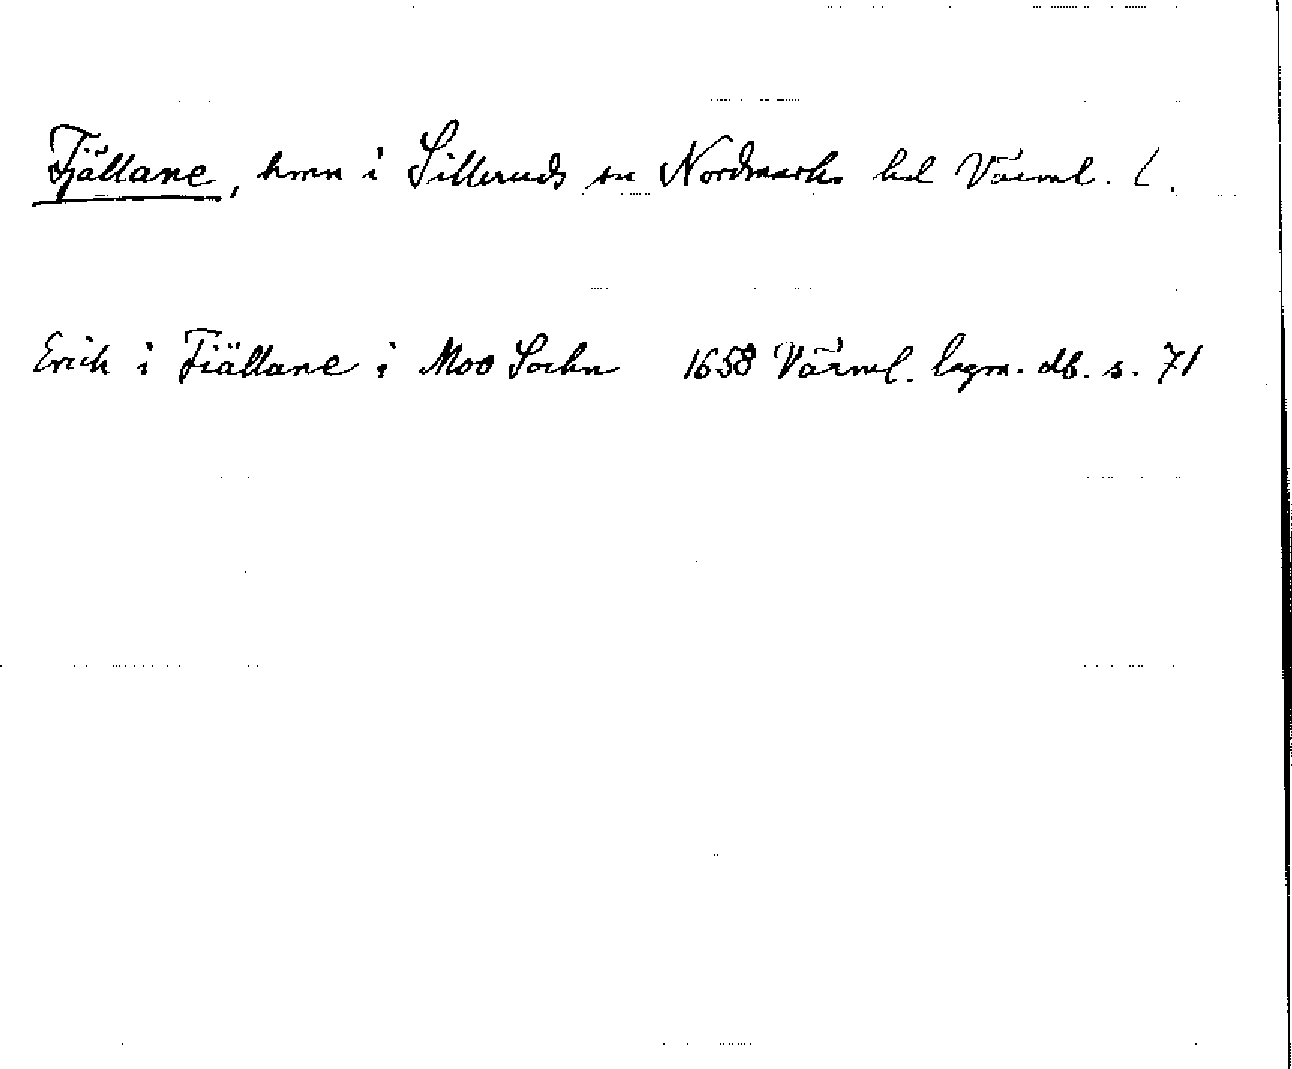 Fjällane, hmn i Silleruds sn Nordmarks hd Värml. l.
Erich i Fiällane i Moo Sochn 1658 Värml. lagm. db. s. 71